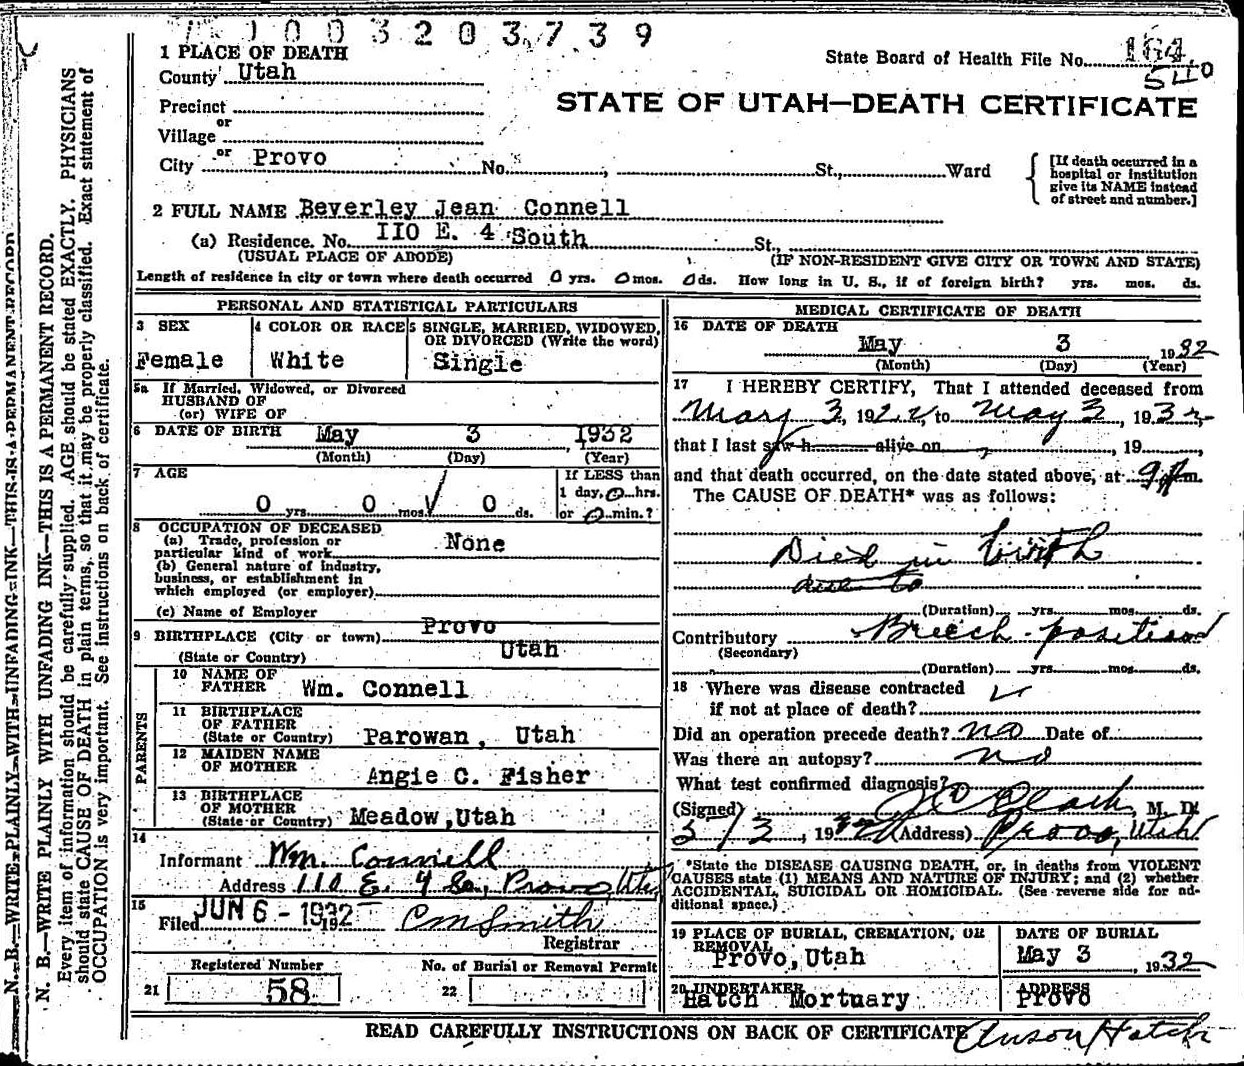 1003203739
1 PLACE OF DEATH
County Utah
State Board of Health File No. 164
540
STATE OF UTAH—DEATH CERTIFICATE
Precinct
or
Village
or
City Provo No. , St., Ward
[If death occurred in a hospital or institution give its NAME instead of street and number.]
2 FULL NAME Beverley Jean Connell
(a) Residence. No. 110 E. 4 South St.,
(USUAL PLACE OF ABODE) (IF NON-RESIDENT GIVE CITY OR TOWN AND STATE)
Length of residence in city or town where death occurred 0 yrs. 0 mos. 0 ds. How long in U. S., if of foreign birth? yrs. mos. ds.
PERSONAL AND STATISTICAL PARTICULARS
3 SEX
Female
4 COLOR OR RACE
White
5 SINGLE, MARRIED, WIDOWED, OR DIVORCED (Write the word)
Single
5a If Married, Widowed, or Divorced
HUSBAND OF
(or) WIFE OF
6 DATE OF BIRTH May 3 1932
(Month) (Day) (Year)
7 AGE
0 yrs. 0 mos. 0 ds.
If LESS than
1 day, 0 hrs.
or 0 min.?
8 OCCUPATION OF DECEASED
(a) Trade, profession or
particular kind of work None
(b) General nature of industry,
business, or establishment in
which employed (or employer)
(c) Name of Employer
9 BIRTHPLACE (City or town) Provo
(State or Country) Utah
PARENTS
10 NAME OF
FATHER Wm. Connell
11 BIRTHPLACE
OF FATHER
(State or Country) Parowan, Utah
12 MAIDEN NAME
OF MOTHER Angie C. Fisher
13 BIRTHPLACE
OF MOTHER
(State or Country) Meadow, Utah
14
Informant Wm. Connell
Address 110 E. 4 So, Provo, Utah
15
Filed JUN 6 - 1932 19 C M Smith
Registrar
Registered Number
21 58
No. of Burial or Removal Permit
22
MEDICAL CERTIFICATE OF DEATH
16 DATE OF DEATH
May 3 1932
(Month) (Day) (Year)
17 I HEREBY CERTIFY, That I attended deceased from
May 3, 19 to May 3, 1932
that I last saw h alive on , 19
and that death occurred, on the date stated above, at 9 m.
The CAUSE OF DEATH* was as follows:
Died in birth
due to
(Duration) yrs. mos. ds.
Contributory Breech position
(Secondary)
(Duration) yrs. mos. ds.
18 Where was disease contracted
if not at place of death?
Did an operation precede death? no Date of
Was there an autopsy? no
What test confirmed diagnosis?
(Signed) M. D.
5/3, 1932 (Address) Provo, Utah
*State the DISEASE CAUSING DEATH, or, in deaths from VIOLENT
CAUSES state (1) MEANS AND NATURE OF INJURY; and (2) whether
ACCIDENTAL, SUICIDAL OR HOMICIDAL. (See reverse side for ad-
ditional space.)
19 PLACE OF BURIAL, CREMATION, OR
REMOVAL
Provo, Utah
DATE OF BURIAL
May 3, 1932
20 UNDERTAKER
Hatch Mortuary
ADDRESS
Provo
READ CAREFULLY INSTRUCTIONS ON BACK OF CERTIFICATE Anson Hatch
N. B.—WRITE PLAINLY WITH UNFADING INK—THIS IS A PERMANENT RECORD
N. B.—WRITE PLAINLY WITH UNFADING INK—THIS IS A PERMANENT RECORD.
Every item of information should be carefully supplied. AGE should be stated EXACTLY. PHYSICIANS
should state CAUSE OF DEATH in plain terms, so that it may be properly classified. Exact statement of
OCCUPATION is very important. See instructions on back of certificate.